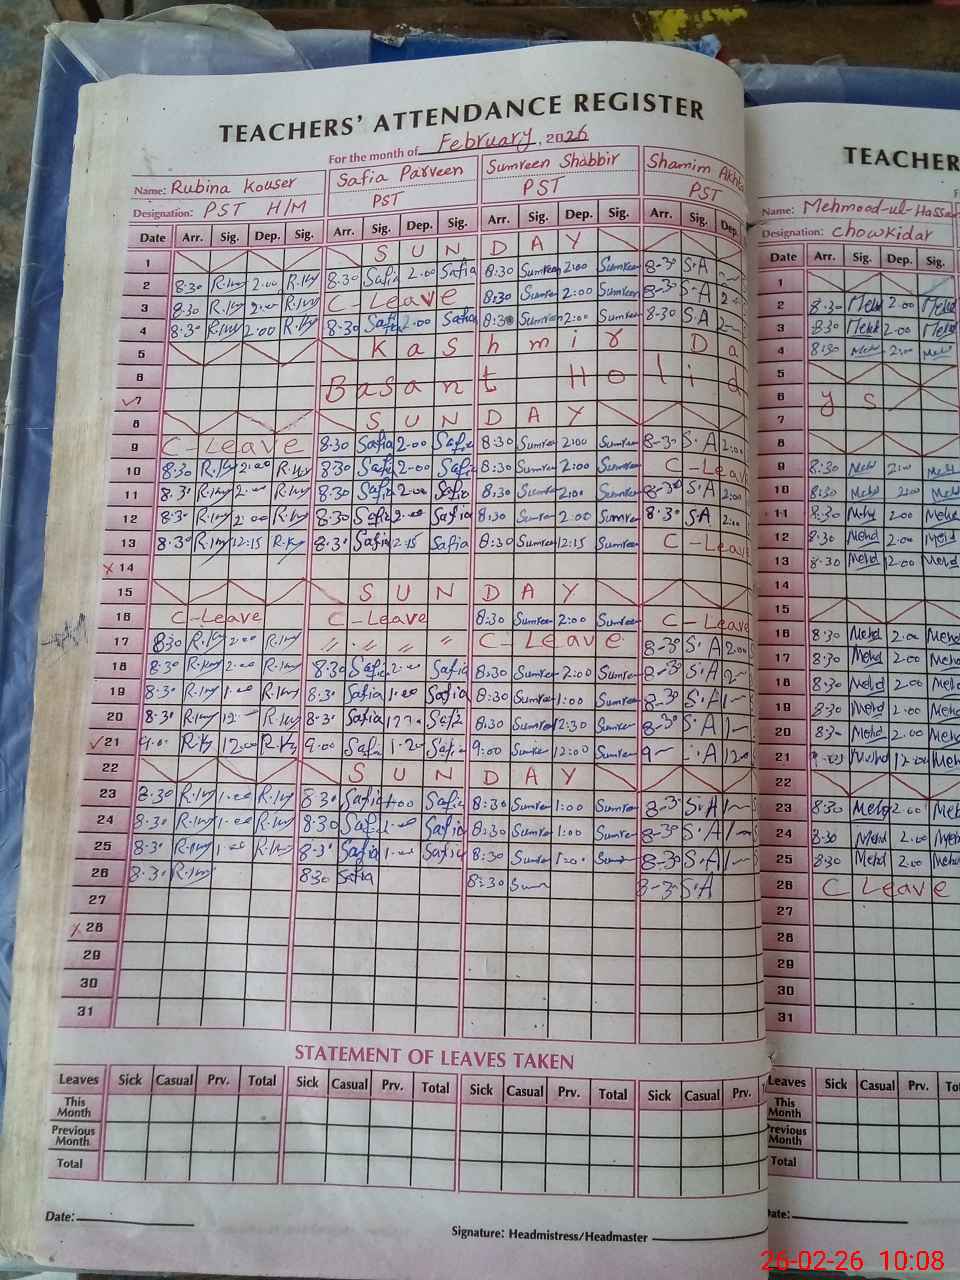 TEACHERS' ATTENDANCE REGISTER
For the month of February, 2026
Name: Rubina Kouser Safia Parveen Sumreen Shabbir Shamim
Designation: PST H/M PST PST PST
Date Arr. Sig. Dep. Sig. Arr. Sig. Dep. Sig. Arr. Sig. Dep. Sig. Arr. Sig. Dep.
1 SUNDAY
2 8:30 2:00 8:30 Safia 2:00 Safia 8:30 Sumreen 2:00 Sumreen 8-30 S.A
3 8:30 2:00 C-Leave 8:30 Sumreen 2:00 Sumreen 8-30 S.A
4 8:30 2:00 8:30 Safia 2:00 Safia 8:30 Sumreen 2:00 Sumreen 8-30 S.A
5 Kashmir Da
6
✓7 Basant Holid
8 SUNDAY
9 C-Leave 8:30 Safia 2:00 Safia 8:30 Sumreen 2:00 Sumreen 8-30 S.A 2:00
10 8:30 2:00 8:30 Safia 2:00 Safia 8:30 Sumreen 2:00 Sumreen C-Leave
11 8:30 2:00 8:30 Safia 2:00 Safia 8:30 Sumreen 2:00 Sumreen 8-30 S.A 2:00
12 8:30 2:00 8:30 Safia 2:00 Safia 8:30 Sumreen 2:00 Sumreen 8:30 S.A 2:00
13 8:30 12:15 8:30 Safia 12:15 Safia 8:30 Sumreen 12:15 Sumreen C-Leave
x14
15 SUNDAY
16 C-Leave C-Leave 8:30 Sumreen 2:00 Sumreen C-Leave
17 8:30 2:00 〃 〃 〃 〃 C-Leave 8-30 S.A 2:00
18 8:30 2:00 8:30 Safia 2:00 Safia 8:30 Sumreen 2:00 Sumreen 8-30 S.A
19 8:30 1:00 8:30 Safia 1:00 Safia 8:30 Sumreen 1:00 Sumreen 8-30 S.A
20 8:30 8:30 Safia Safia 8:30 Sumreen 12:30 Sumreen 8-30 S.A
✓21 9:00 12:00 9:00 Safia Safia 9:00 Sumreen 12:00 Sumreen
22 SUNDAY
23 8:30 1:00 8:30 Safia 1:00 Safia 8:30 Sumreen 1:00 Sumreen 8-30 S.A
24 8:30 1:00 8:30 Safia 1:00 Safia 8:30 Sumreen 1:00 Sumreen 8-30 S.A
25 8:30 1:00 8:30 Safia 1:00 Safia 8:30 Sumreen 1:00 8-30 S.A
26 8:30 8:30 Safia 8:30 8-30 S.A
27
x28
29
30
31
STATEMENT OF LEAVES TAKEN
Leaves Sick Casual Prv. Total Sick Casual Prv. Total Sick Casual Prv. Total Sick Casual Prv.
This Month
Previous Month
Total
Date:
Signature: Headmistress/Headmaster
TEACHER
Name: Mehmood-ul-Hassan
Designation: Chowkidar
Date Arr. Sig. Dep. Sig.
1
2 8:30 2:00
3 8:30 2:00
4 8:30 2:00
5
6 ys
7
8
9 8:30 2:00
10 8:30 2:00
11 8:30 2:00
12 8:30 Mehd 2:00 Mehd
13 8:30 Mehd 2:00 Mehd
14
15
16 8:30 Mehd 2:00 Mehd
17 8:30 Mehd 2:00 Mehd
18 8:30 Mehd 2:00 Mehd
19 8:30 Mehd 2:00 Mehd
20 8:30 Mehd 2:00 Mehd
21 9:00 Mehd 12:00
22
23 8:30 Mehd 2:00
24 8:30 Mehd 2:00
25 8:30 Mehd 2:00
26 C Leave
27
28
29
30
31
Leaves Sick Casual Prv.
This Month
Previous Month
Total
Date:
26-02-26 10:08